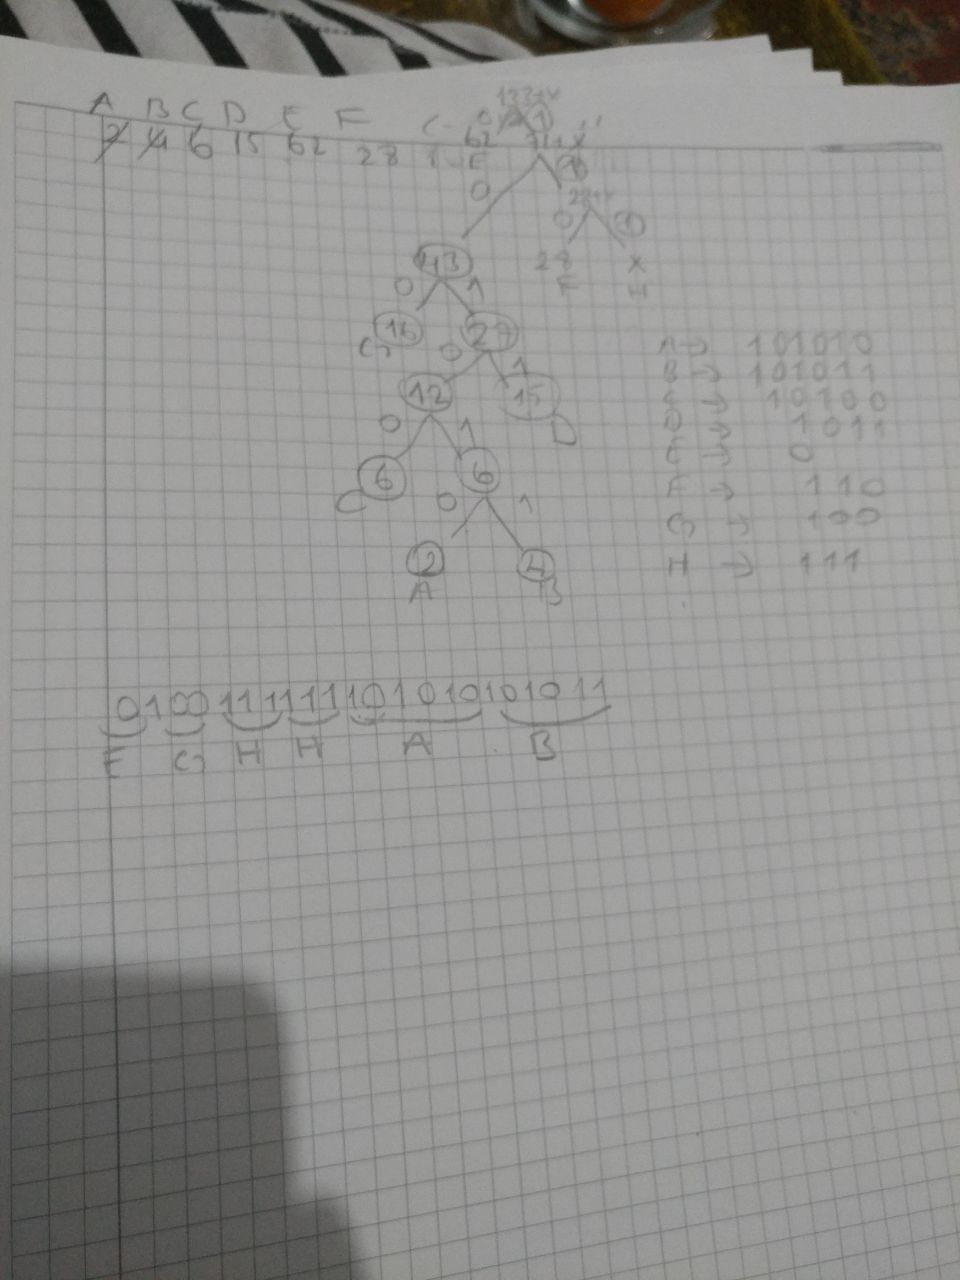 A B C D E F
2 4 6 15 62 28
0 1
62
E
0
0
28 X
F H
43
0 1
16 27
G 0 1
12 15
D
0 1
6 6
C 0 1
2 4
A B
A → 101010
B → 101011
C → 10100
D → 1011
E → 0
F → 110
G → 100
H → 111
0100111111101010101011
E G H H A B